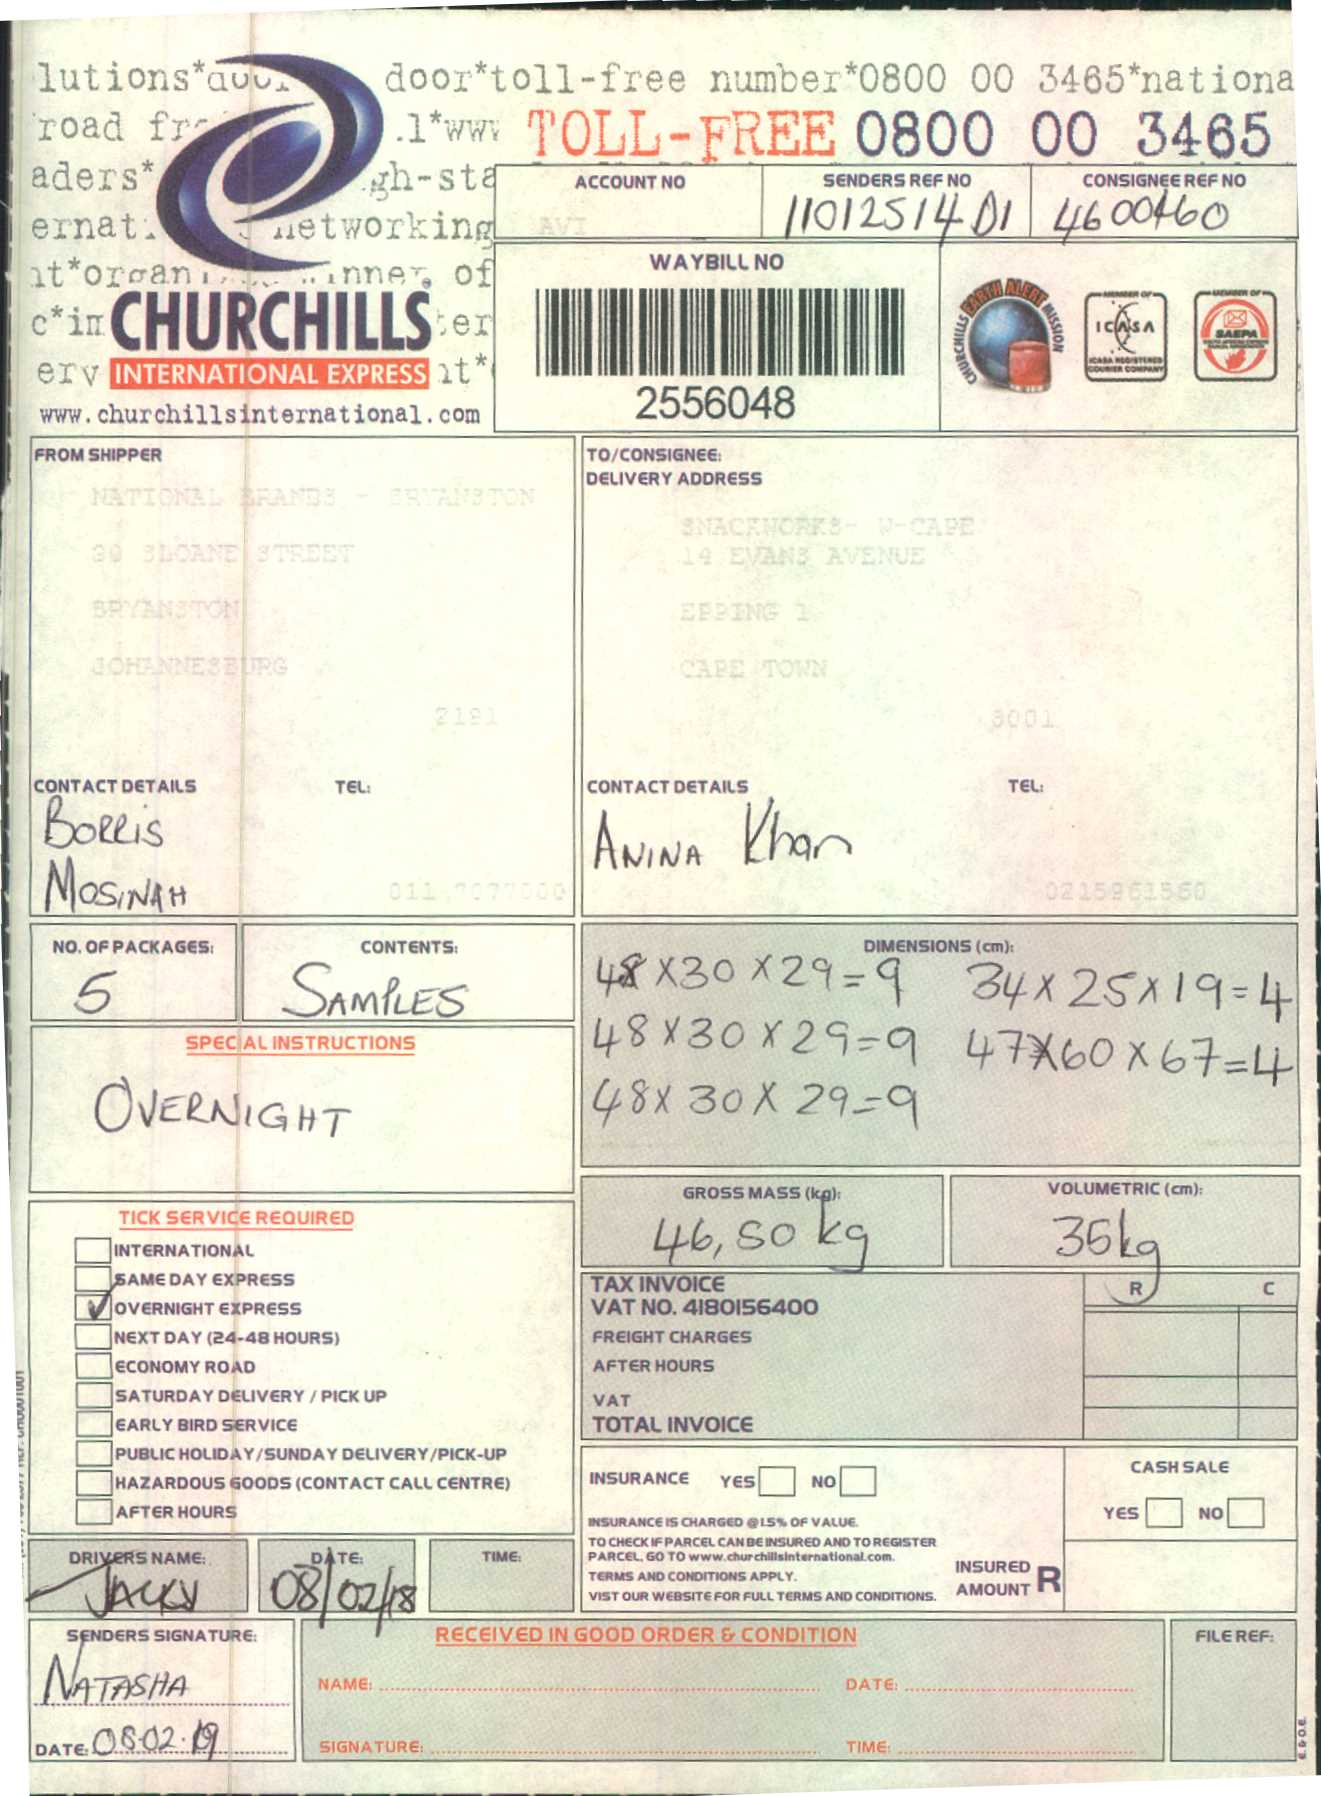 lutions*door door*toll-free number*0800 00 3465*nationa
road .l*www TOLL-FREE 0800 00 3465
aders* gh-sta
ACCOUNT NO SENDERS REF NO CONSIGNEE REF NO
AVI 11012514D1 4600460
ernat networking
nt*organ inner of
WAYBILL NO
2556048
CHURCHILLS EARTH ALERT MISSION
MEMBER OF ICASA
ICASA REGISTERED
COURIER COMPANY
MEMBER OF SAEPA
c*in CHURCHILLS ter
erv INTERNATIONAL EXPRESS nt*
www.churchillsinternational.com
FROM SHIPPER
NATIONAL BRANDS - BRYANSTON
30 SLOANE STREET
BRYANSTON
JOHANNESBURG
2191
CONTACT DETAILS TEL:
BORRIS
MOSINAH 011 7077000
TO/CONSIGNEE:
DELIVERY ADDRESS
SNACKWORKS- W-CAPE
14 EVANS AVENUE
EPPING 1
CAPE TOWN
8001
CONTACT DETAILS TEL:
ANINA Khan
0215961560
NO. OF PACKAGES: CONTENTS:
5 SAMPLES
DIMENSIONS (cm):
48 X 30 X 29 = 9 34 X 25 X 19 = 4
48 X 30 X 29 = 9 47 X 60 X 67 = 4
48 X 30 X 29 = 9
SPECIAL INSTRUCTIONS
OVERNIGHT
GROSS MASS (kg): VOLUMETRIC (cm):
46,50 kg 35kg
TICK SERVICE REQUIRED
INTERNATIONAL
SAME DAY EXPRESS
OVERNIGHT EXPRESS
NEXT DAY (24-48 HOURS)
ECONOMY ROAD
SATURDAY DELIVERY / PICK UP
EARLY BIRD SERVICE
PUBLIC HOLIDAY/SUNDAY DELIVERY/PICK-UP
HAZARDOUS GOODS (CONTACT CALL CENTRE)
AFTER HOURS
TAX INVOICE R C
VAT NO. 4180156400
FREIGHT CHARGES
AFTER HOURS
VAT
TOTAL INVOICE
INSURANCE YES NO
INSURANCE IS CHARGED @1.5% OF VALUE.
TO CHECK IF PARCEL CAN BE INSURED AND TO REGISTER
PARCEL, GO TO www.churchillsinternational.com.
TERMS AND CONDITIONS APPLY.
VIST OUR WEBSITE FOR FULL TERMS AND CONDITIONS.
INSURED
AMOUNT R
CASH SALE
YES NO
DRIVERS NAME: DATE: TIME:
JACKY 08/02/18
SENDERS SIGNATURE:
NATASHA
DATE: 08.02.19
RECEIVED IN GOOD ORDER & CONDITION
NAME: DATE:
SIGNATURE: TIME:
FILE REF:
E. & O.E.